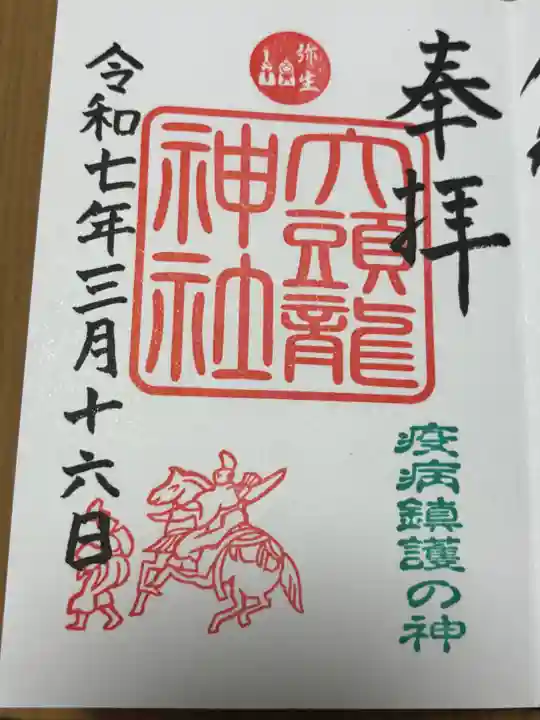 奉拝
疫病鎮護の神
弥生
六頭龍
神社
令和七年三月十六日